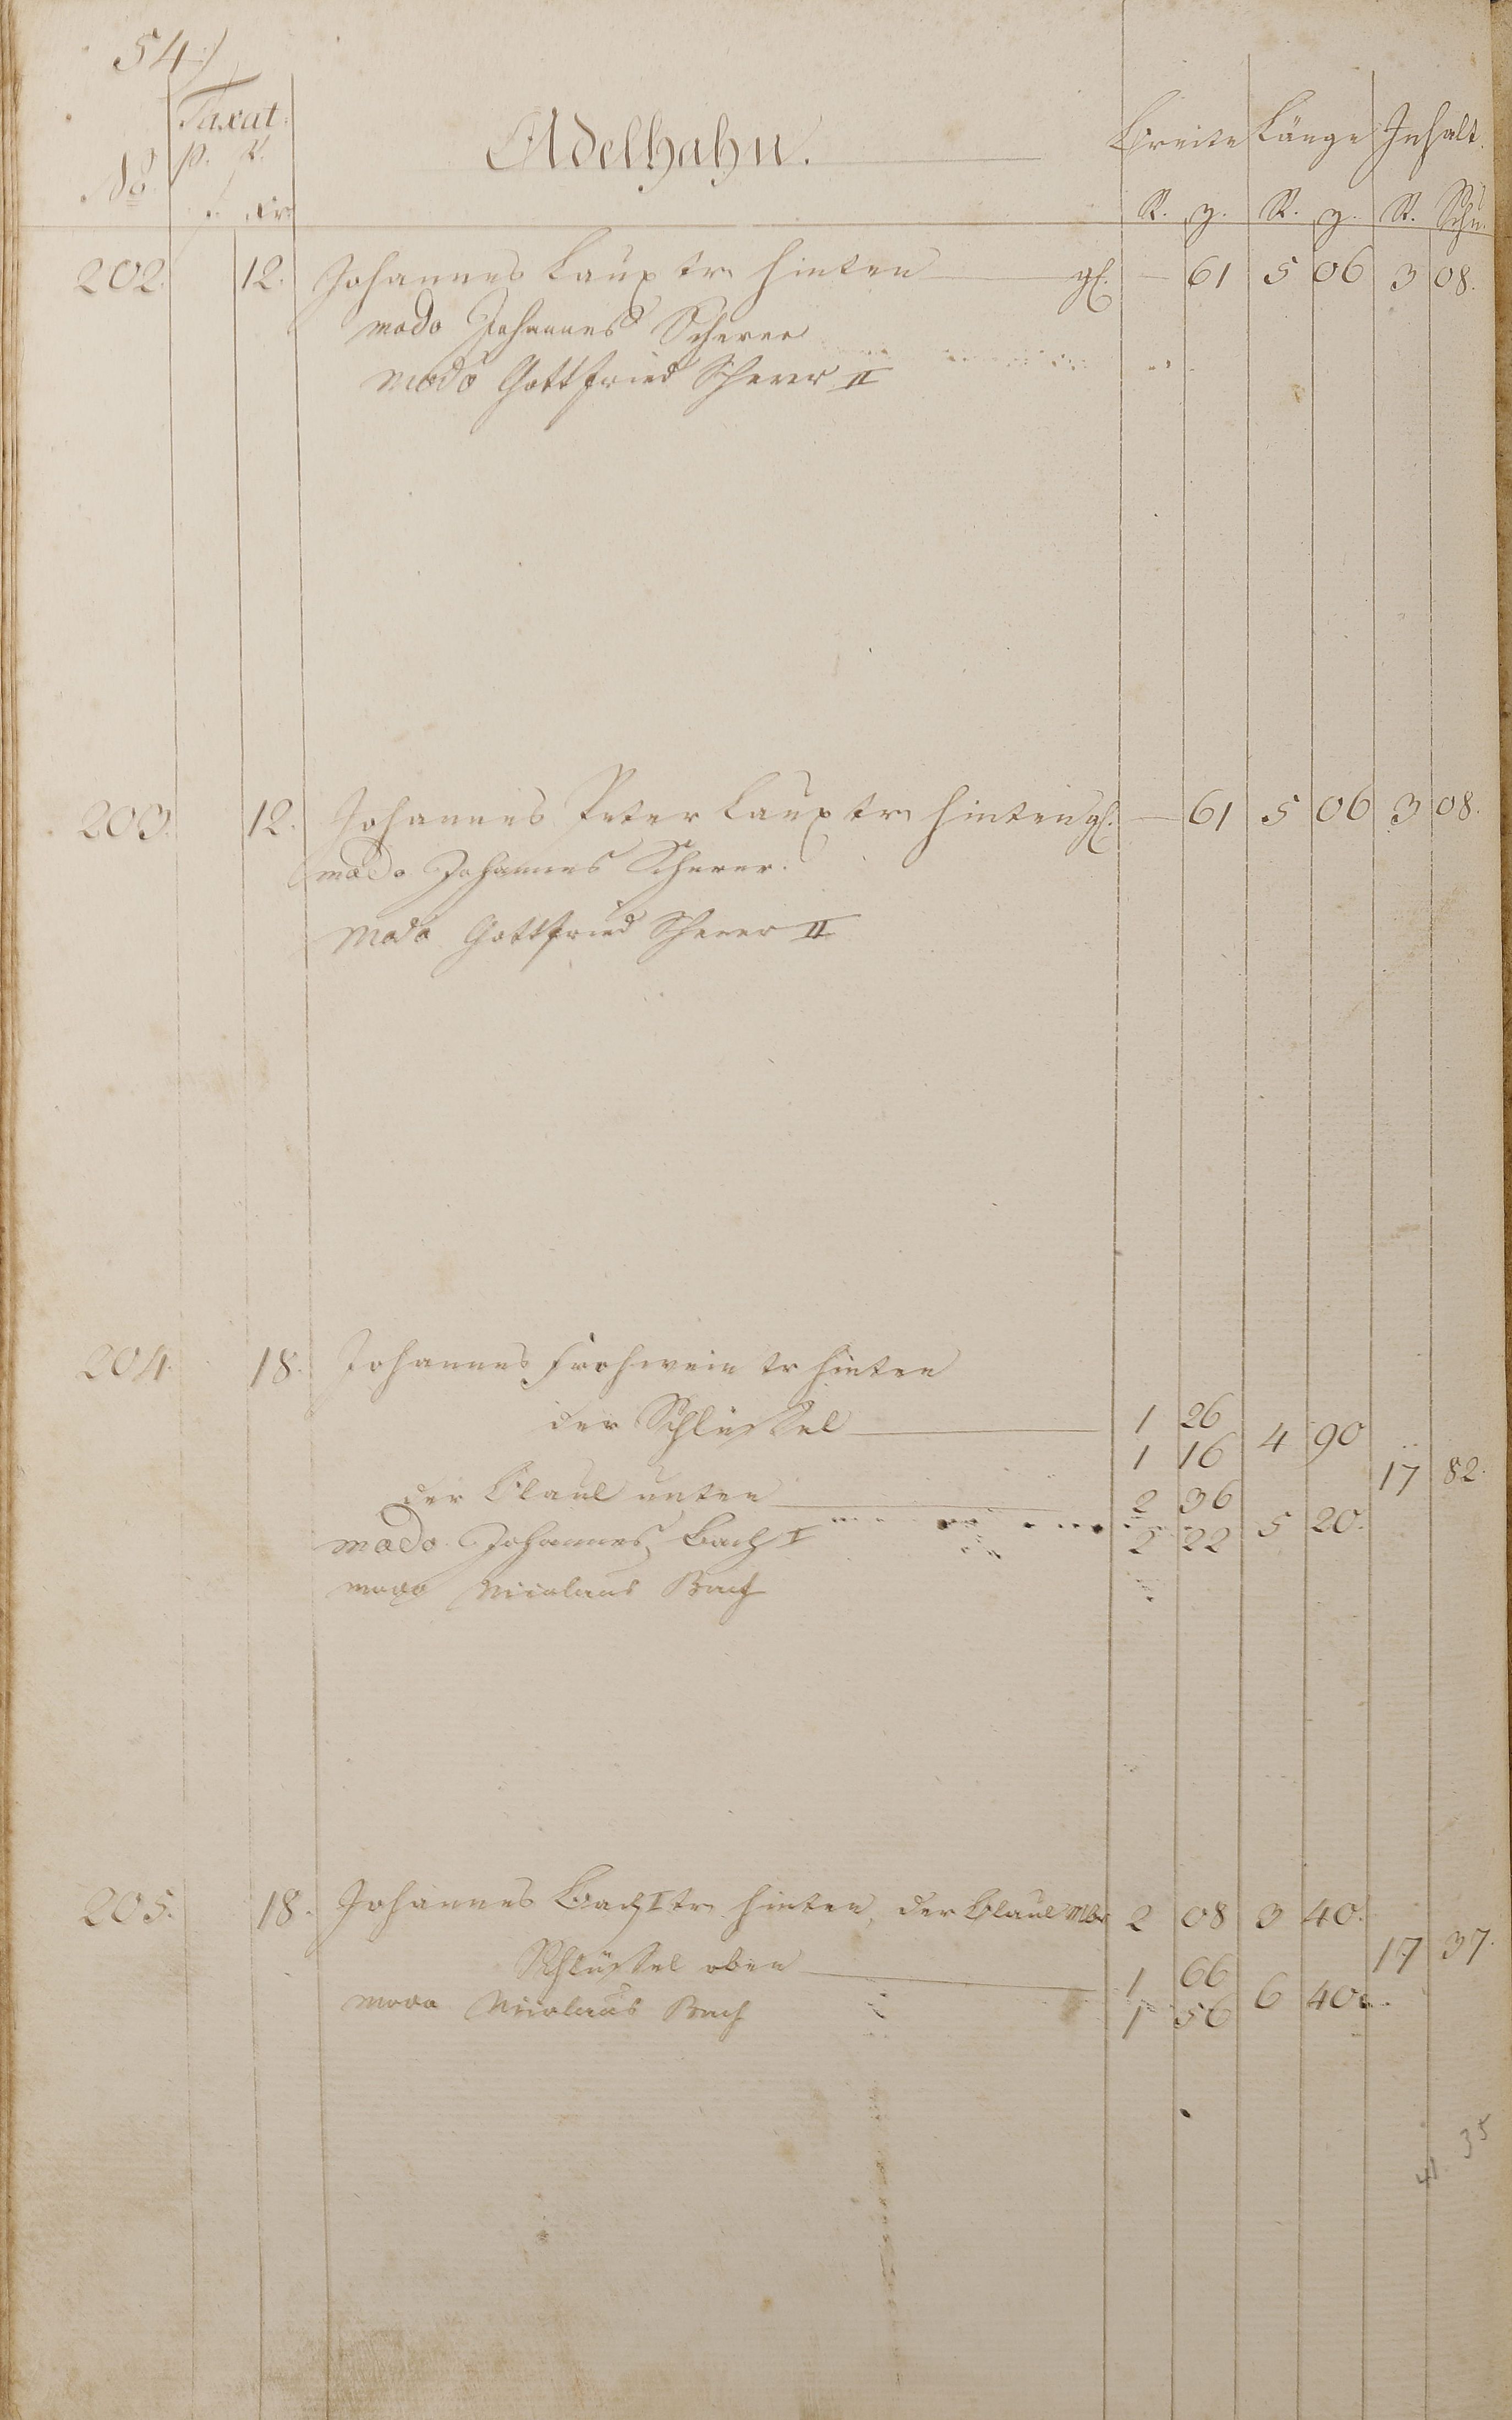 54./
Taxat:
Adelhahn.
Breite Länge Inhalt.
No. p. R.
Xr. R. g. R. g. R. Schu.
202. 12. Johannes Laux tr. hinten gl. — 61 5 06 3 08.
modo Johannes Scherer
modo Gottfried Scherer II
203. 12. Johannes Peter Laux tr. hinten gl. — 61 5 06 3 08.
modo Johannes Scherer.
modo Gottfried Scherer II
204. 18. Johannes Frohwein tr hinten
der Schlüssel 1 26
1 16 4 90
17 82.
der unten 2 36
modo Johannes Bach I 2 22 5 20.
modo Nicolaus Bach
205. 18. Johannes Bach I tr. hinten, der 2 08 3 40.
17 37.
Schlüssel oben 1 66
1 56 6 40.
modo Nicolaus Bach
41 35